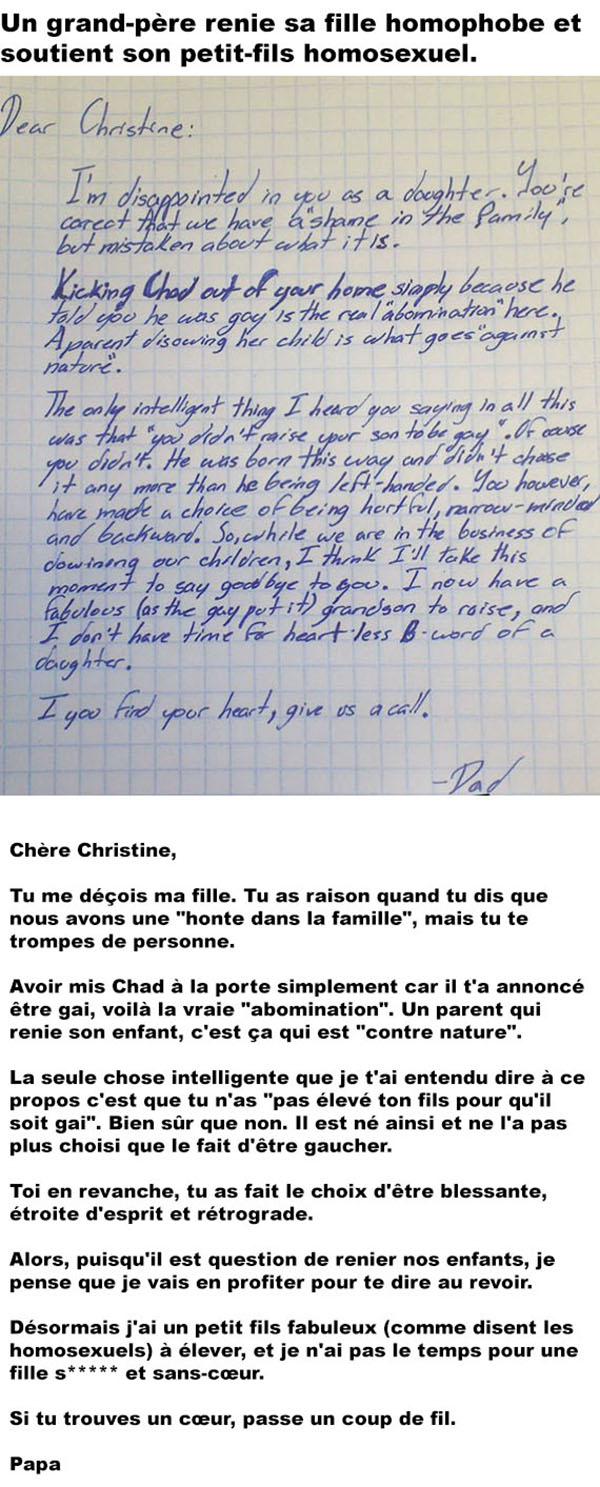 Un grand-père renie sa fille homophobe et
soutient son petit-fils homosexuel.
Dear Christine:
I'm disappointed in you as a daughter. You're
corect that we have a "shame in the family",
but mistaken about what it is.
Kicking Chad out of your home simply because he
told you he was gay is the real "abomination" here.
A parent disowing her child is what goes "against
nature".
The only intelligent thing I heard you saying in all this
was that "you didn't raise your son to be gay". Of couse
you didn't. He was born this way and didn't chose
it any more than he being left-handed. You however,
have made a choice of being hortful, narrow-minded
and backward. So, while we are in the business of
dowining our children, I think I'll take this
moment to say goodbye to you. I now have a
fabulous (as the gay put it) grandson to raise, and
I don't have time for heart-less B-word of a
daughter.
I you find your heart, give us a call.
-Dad
Chère Christine,
Tu me déçois ma fille. Tu as raison quand tu dis que
nous avons une "honte dans la famille", mais tu te
trompes de personne.
Avoir mis Chad à la porte simplement car il t'a annoncé
être gai, voilà la vraie "abomination". Un parent qui
renie son enfant, c'est ça qui est "contre nature".
La seule chose intelligente que je t'ai entendu dire à ce
propos c'est que tu n'as "pas élevé ton fils pour qu'il
soit gai". Bien sûr que non. Il est né ainsi et ne l'a pas
plus choisi que le fait d'être gaucher.
Toi en revanche, tu as fait le choix d'être blessante,
étroite d'esprit et rétrograde.
Alors, puisqu'il est question de renier nos enfants, je
pense que je vais en profiter pour te dire au revoir.
Désormais j'ai un petit fils fabuleux (comme disent les
homosexuels) à élever, et je n'ai pas le temps pour une
fille s***** et sans-cœur.
Si tu trouves un cœur, passe un coup de fil.
Papa